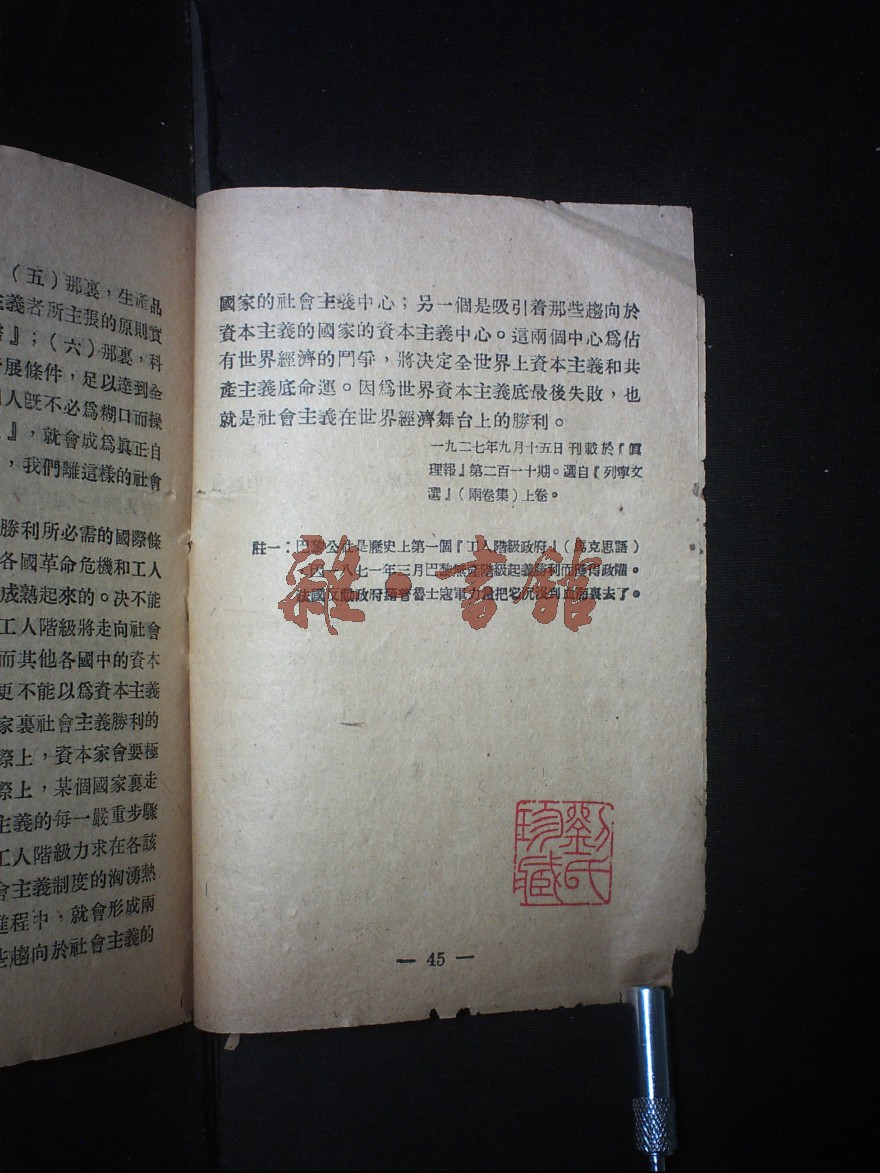 （五）那裏，生產品
主義者所主張的原則實
』；（六）那裏，科
展條件，足以達到全
人旣不必爲糊口而操
』，就會成爲眞正自
，我們離這樣的社會
勝利所必需的國際條
各國革命危機和工人
成熟起來的。决不能
工人階級將走向社會
而其他各國中的資本
更不能以爲資本主義
家裏社會主義勝利的
際上，資本家會要極
際上，某個國家裏走
主義的每一嚴重步驟
工人階級力求在各該
會主義制度的洶湧熱
進程中，就會形成兩
些趨向於社會主義的
國家的社會主義中心；另一個是吸引着那些趨向於
資本主義的國家的資本主義中心。這兩個中心爲佔
有世界經濟的鬥爭，將决定全世界上資本主義和共
產主義底命運。因爲世界資本主義底最後失敗，也
就是社會主義在世界經濟舞台上的勝利。
一九二七年九月十五日刊載於『眞
理報』第二百一十期。選自『列寧文
選』（兩卷集）上卷。
註一：巴黎公社是歷史上第一個『工人階級政府』（馬克思語）
因一八七一年三月巴黎無產階級起義勝利而獲得政權。
法國反動政府藉普魯士寇軍力量把它沉沒到血泊裏去了。
雜·書館
劉氏珍藏
— 45 —